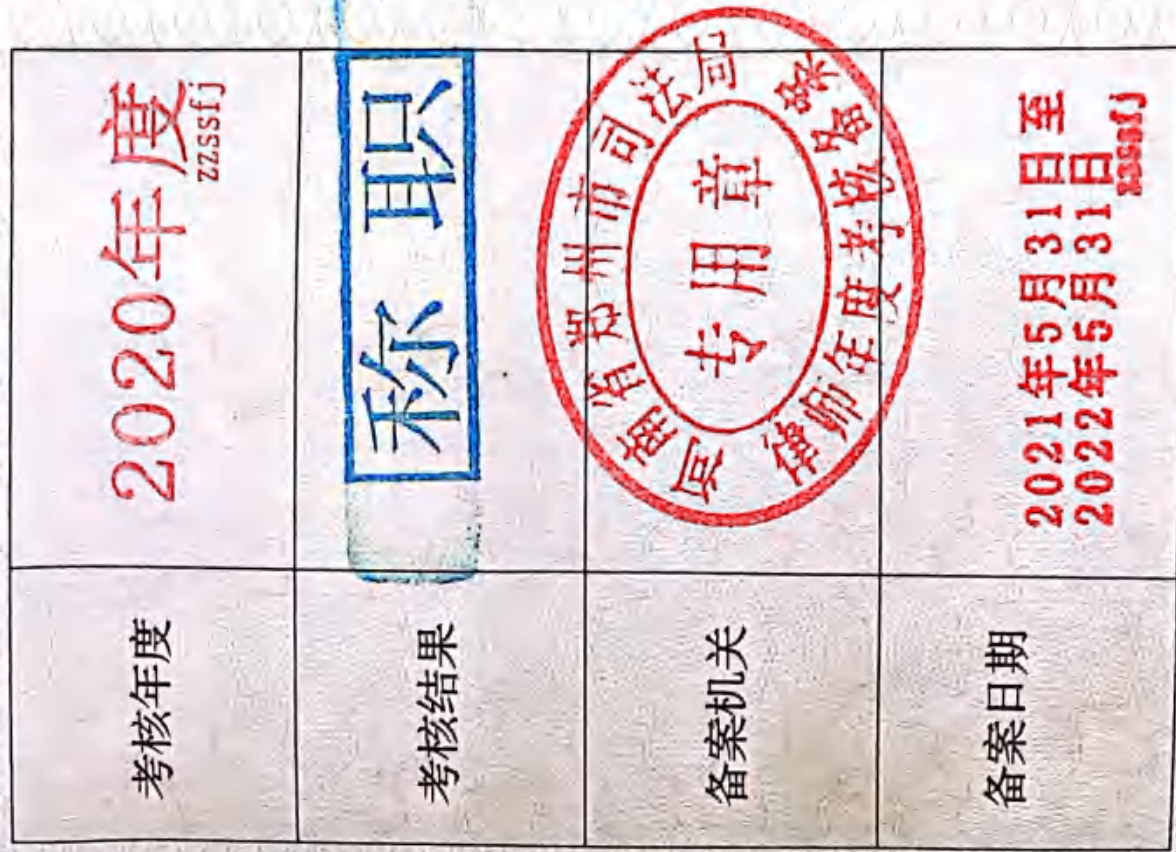 考核年度
2020年度
zzssfj
考核结果
称职
备案机关
河南省郑州市司法局
专用章
律师年度考核备案
备案日期
2021年5月31日至
2022年5月31日
zzssfj